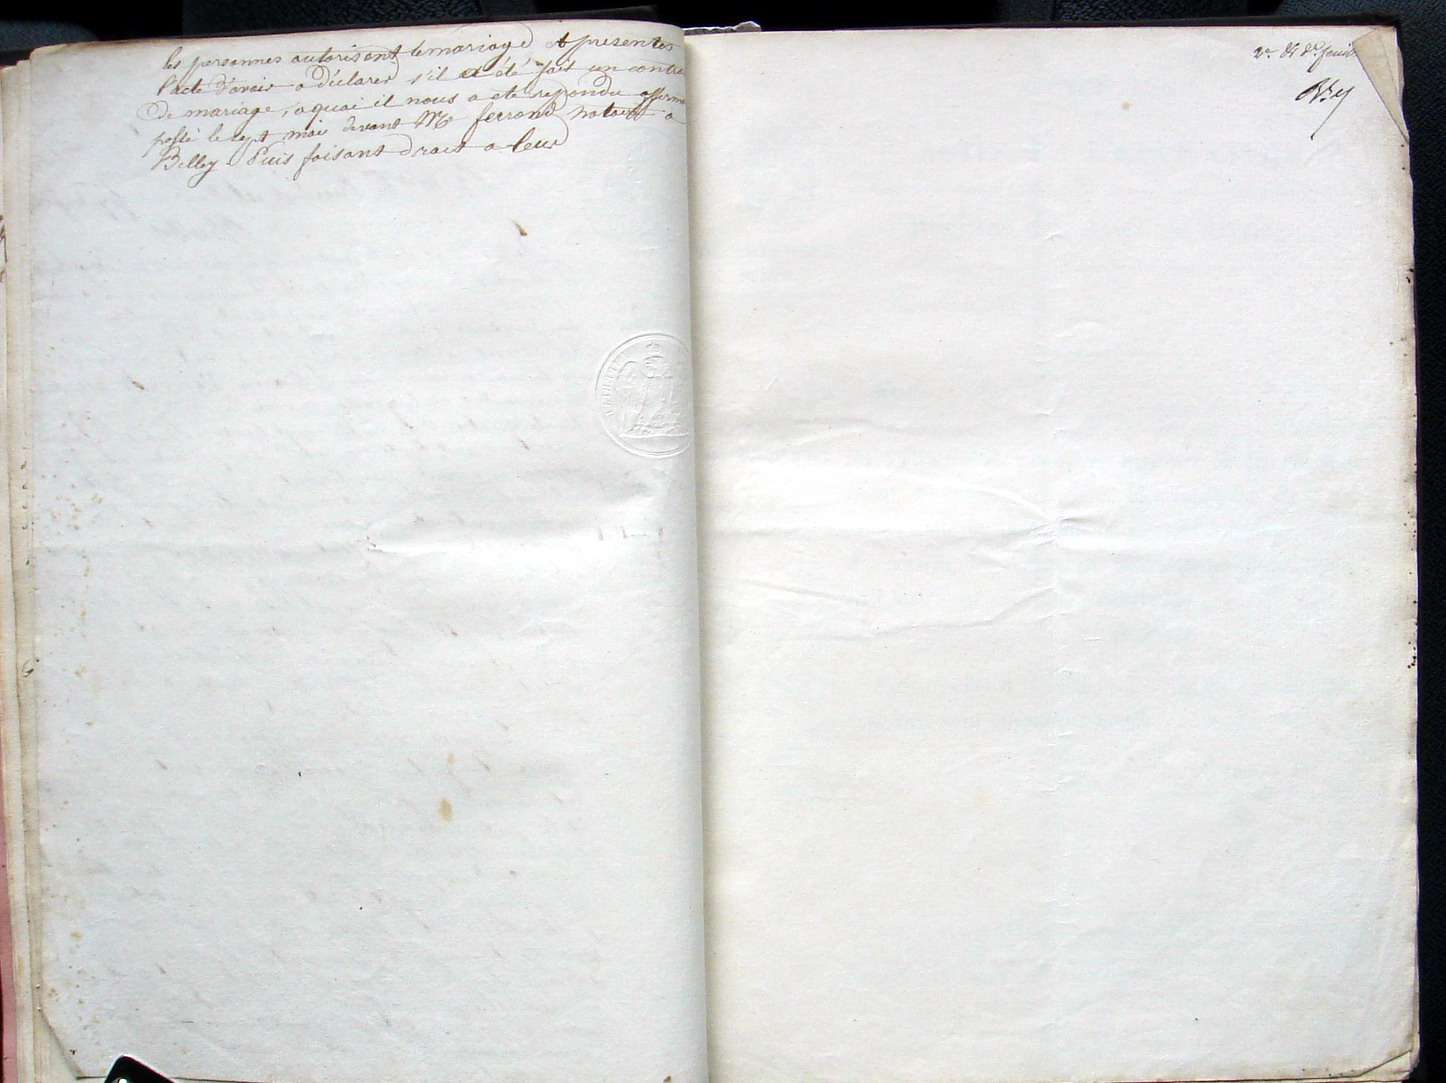 les personnes autorisant le mariage et presentes
l'acte d'avoir a déclarer s'il a été fait un contra
de mariage, a quoi il nous a été répondu affirma
passé le sept mai devant Me ferrand notaire a
Belley Puis faisant droit a leur
2e et de feuil